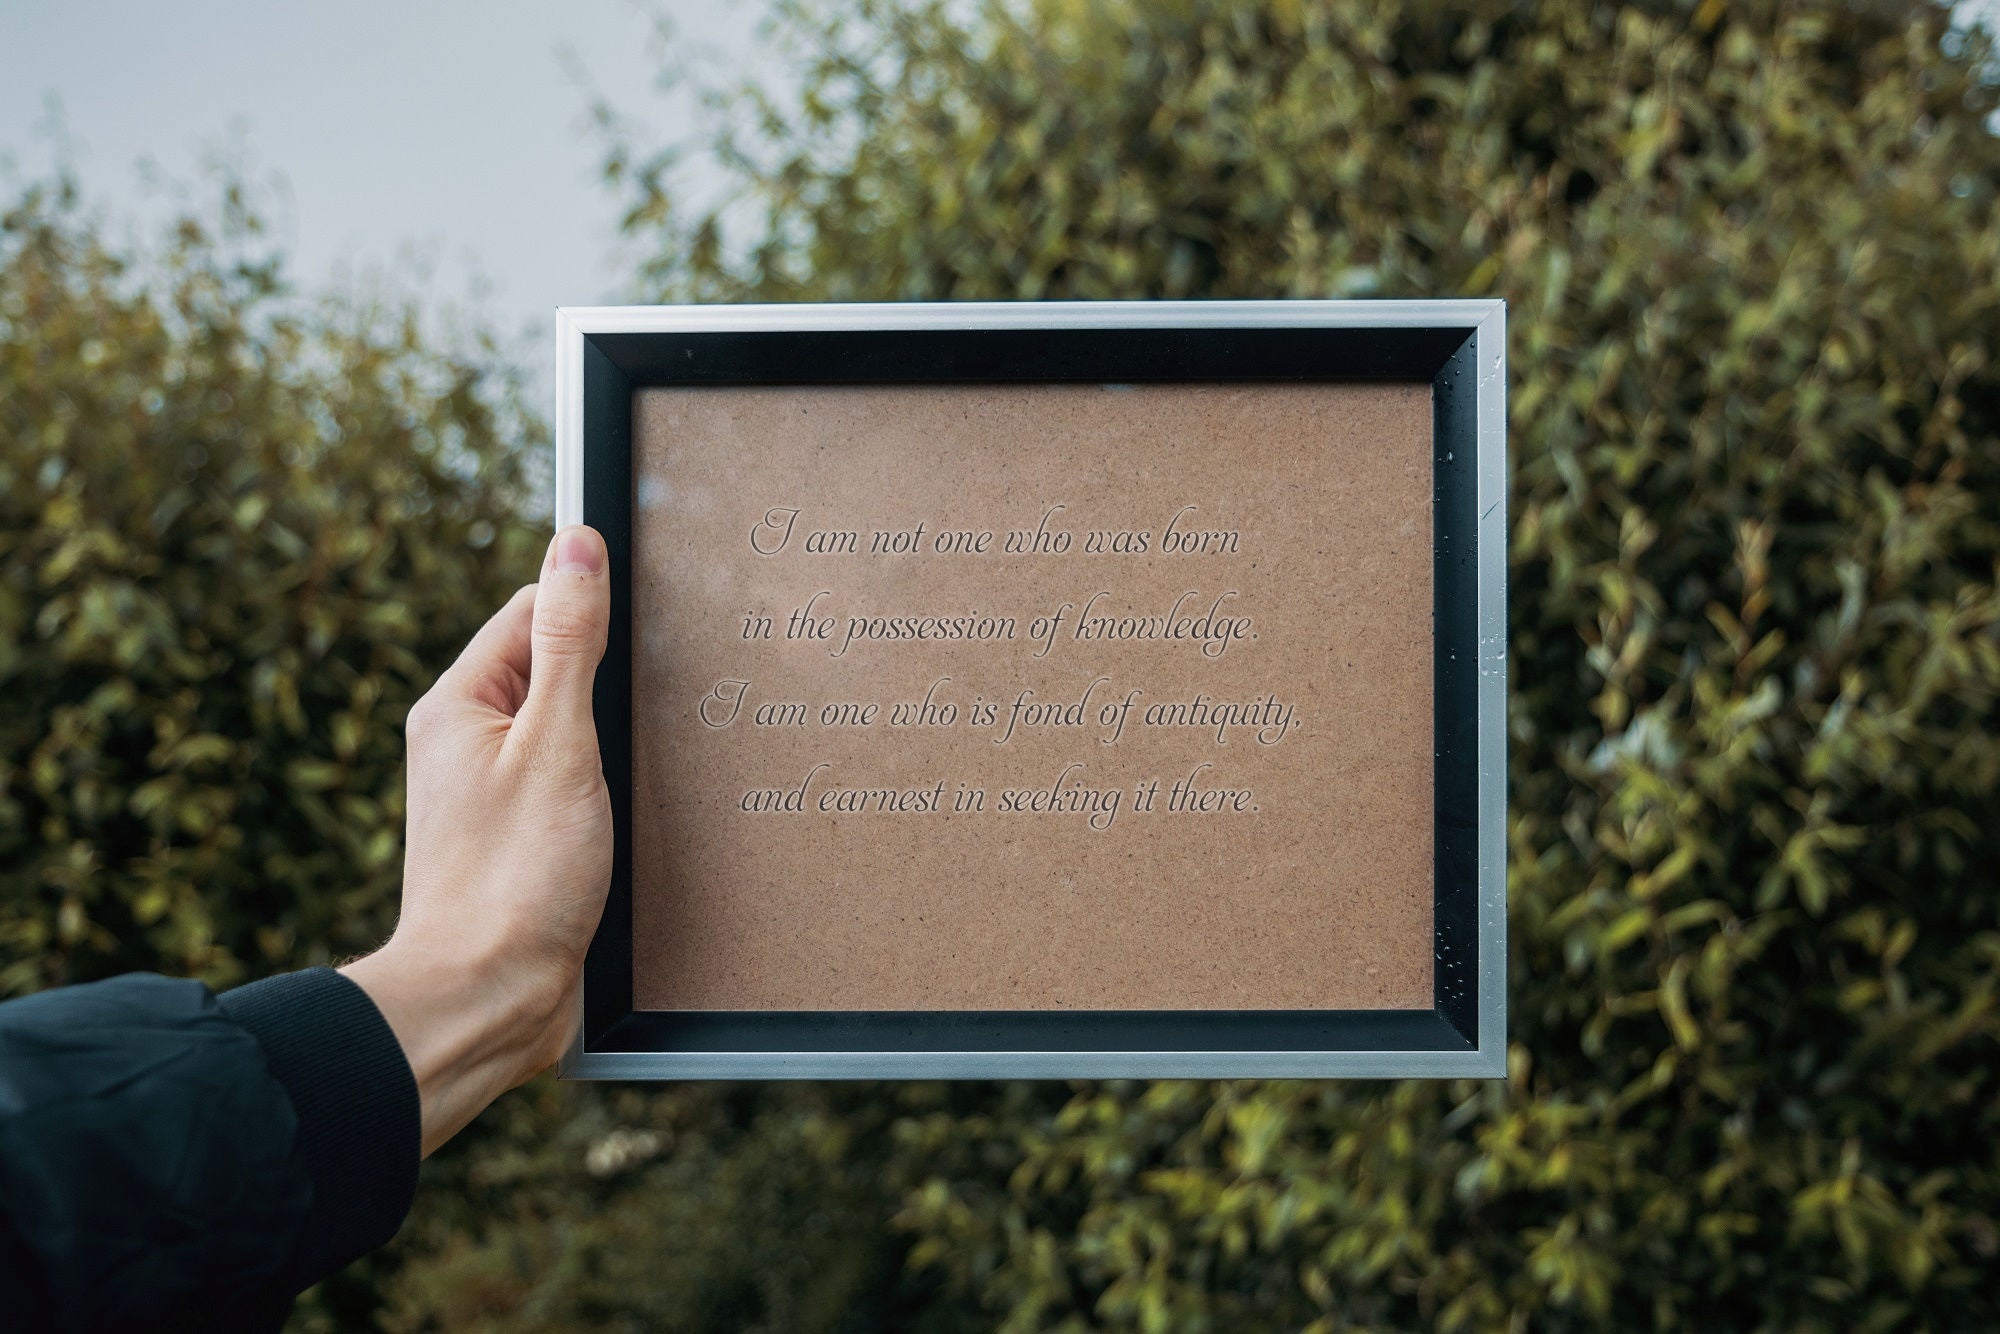 I am not one who was born
in the possession of knowledge.
I am one who is fond of antiquity,
and earnest in seeking it there.